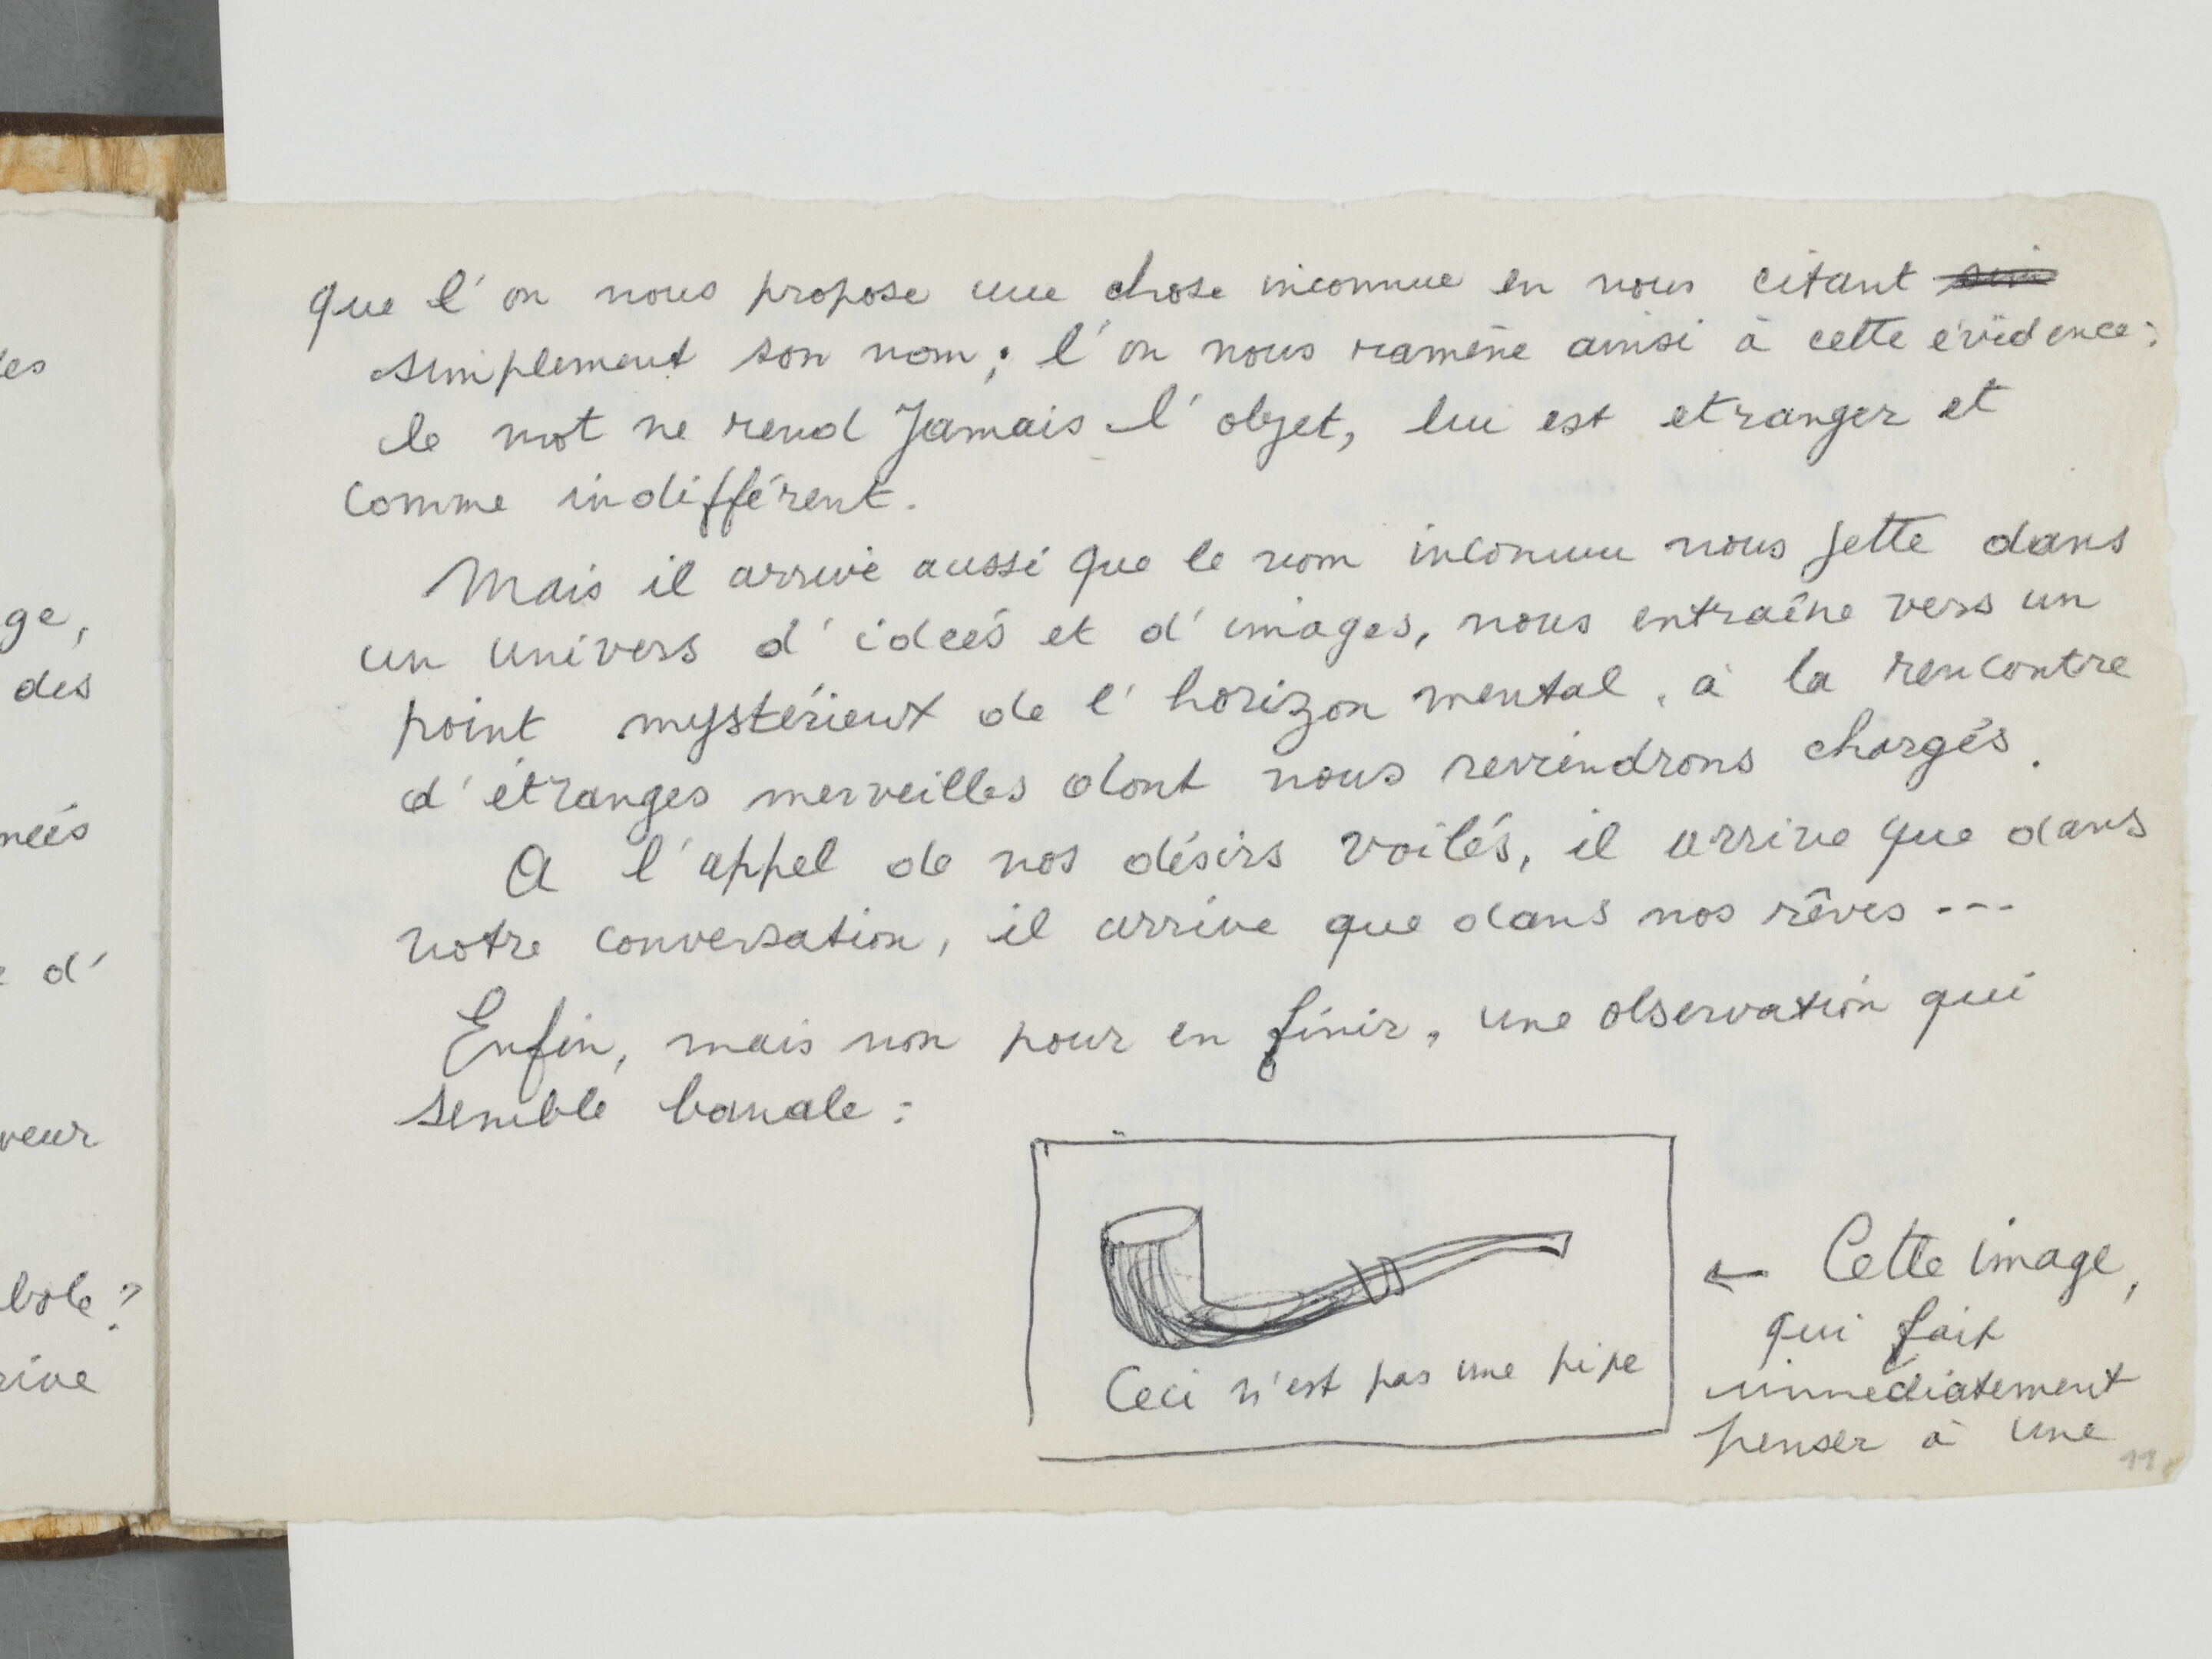 que l'on nous propose une chose inconnue en nous citant
simplement son nom; l'on nous ramène ainsi à cette évidence:
le mot ne rend Jamais l'objet, lui est etranger et
comme indifférent.
Mais il arrive aussi que le nom inconnu nous jette dans
un univers d'ideés et d'images, nous entraîne vers un
point mystérieux de l'horizon mental, à la rencontre
d'étranges merveilles dont nous reviendrons chargés.
A l'appel de nos désirs voilés, il arrive que dans
notre conversation, il arrive que dans nos rêves ---
Enfin, mais non pour en finir, une observation qui
semble banale:
Ceci n'est pas une pipe
← Cette image,
qui fait
immédiatement
penser à une
11
ge,
des
d'